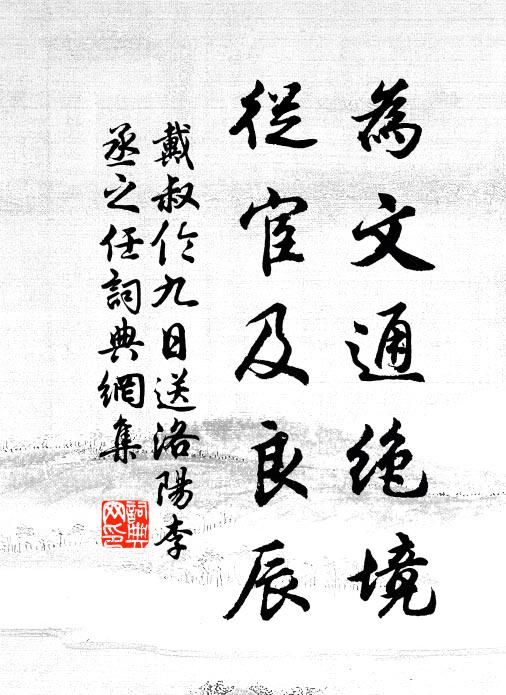 為文通絶境
從宦及良辰
戴叔倫九日送洛陽李
丞之任詞典網集
詞典
网印